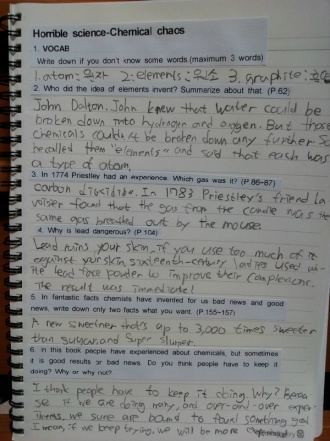 Horrible science-Chemical chaos
1. VOCAB
Write down if you don't know some words (maximum 3 words)
1. atom: 원자 2. elements: 원소 3. graphite: 흑연
2. Who did the idea of elements invent? Summarize about that. (P.62)
John Dalton. John knew that water could be
broken down into hydrogen and oxygen. But those
chemicals couldn't be broken down any further. So
he called them "elements" and said that each was
a type of atom.
3. In 1774 Priestley had an experience. Which gas was it? (P.86~87)
carbon dioxide. In 1783 Priestley's friend La
voisier found that the gas from the candle was the
same gas breathed out by the mouse.
4. Why is lead dangerous? (P.104)
Lead ruins your skin, if you use too much of it
against your skin. Sixteenth-century ladies used
the lead face powder to improve their complexions.
The result was immediate!
5. In fantastic facts chemists have invented for us bad news and good
news, write down only two facts what you want. (P.155~157)
A new sweetner that's up to 3,000 times sweeter
than sugar and super slurper.
6. In this book people have experienced about chemicals, but sometimes
it is good results or bad news. Do you think people have to keep it
doing? Why or why not?
I think people have to keep it doing. Why? Becau
se if we are doing many, and over-and-over exper
iments, we sure are bound to found something good.
I mean, if we keep trying, we will be more